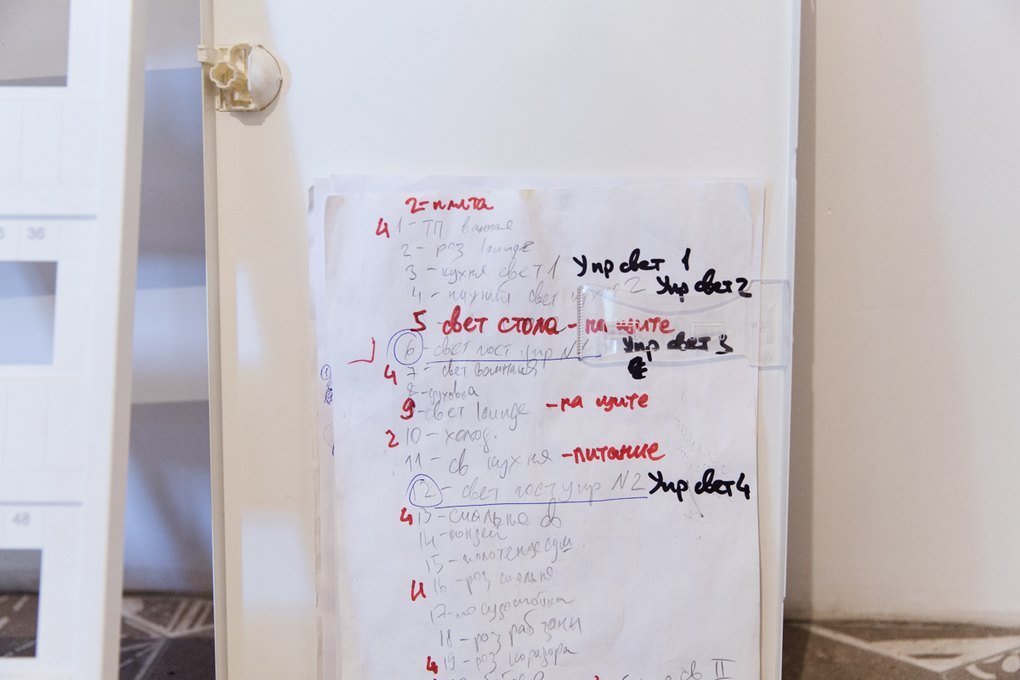 36
48
2-плита
4 1- ТП ванная
2 - роз lounge
3 - кухня свет 1 Упр свет 1
4 - нижний свет 2 Упр свет 2
5 свет стола - на щите
6 - свет гост упр N1 Упр свет 3
4 7 - свет ванная
8 - духовка
9 - свет lounge - на щите
2 10 - холод.
11 - св кухня - питание
12 - свет гост упр N2 Упр свет 4
4 13 - спальня св
14 - кондей
15 - полотенцесуш.
4 16 - роз спальня
17 - посудомойка
18 - роз раб зоны
4 19 - роз коридора
св II